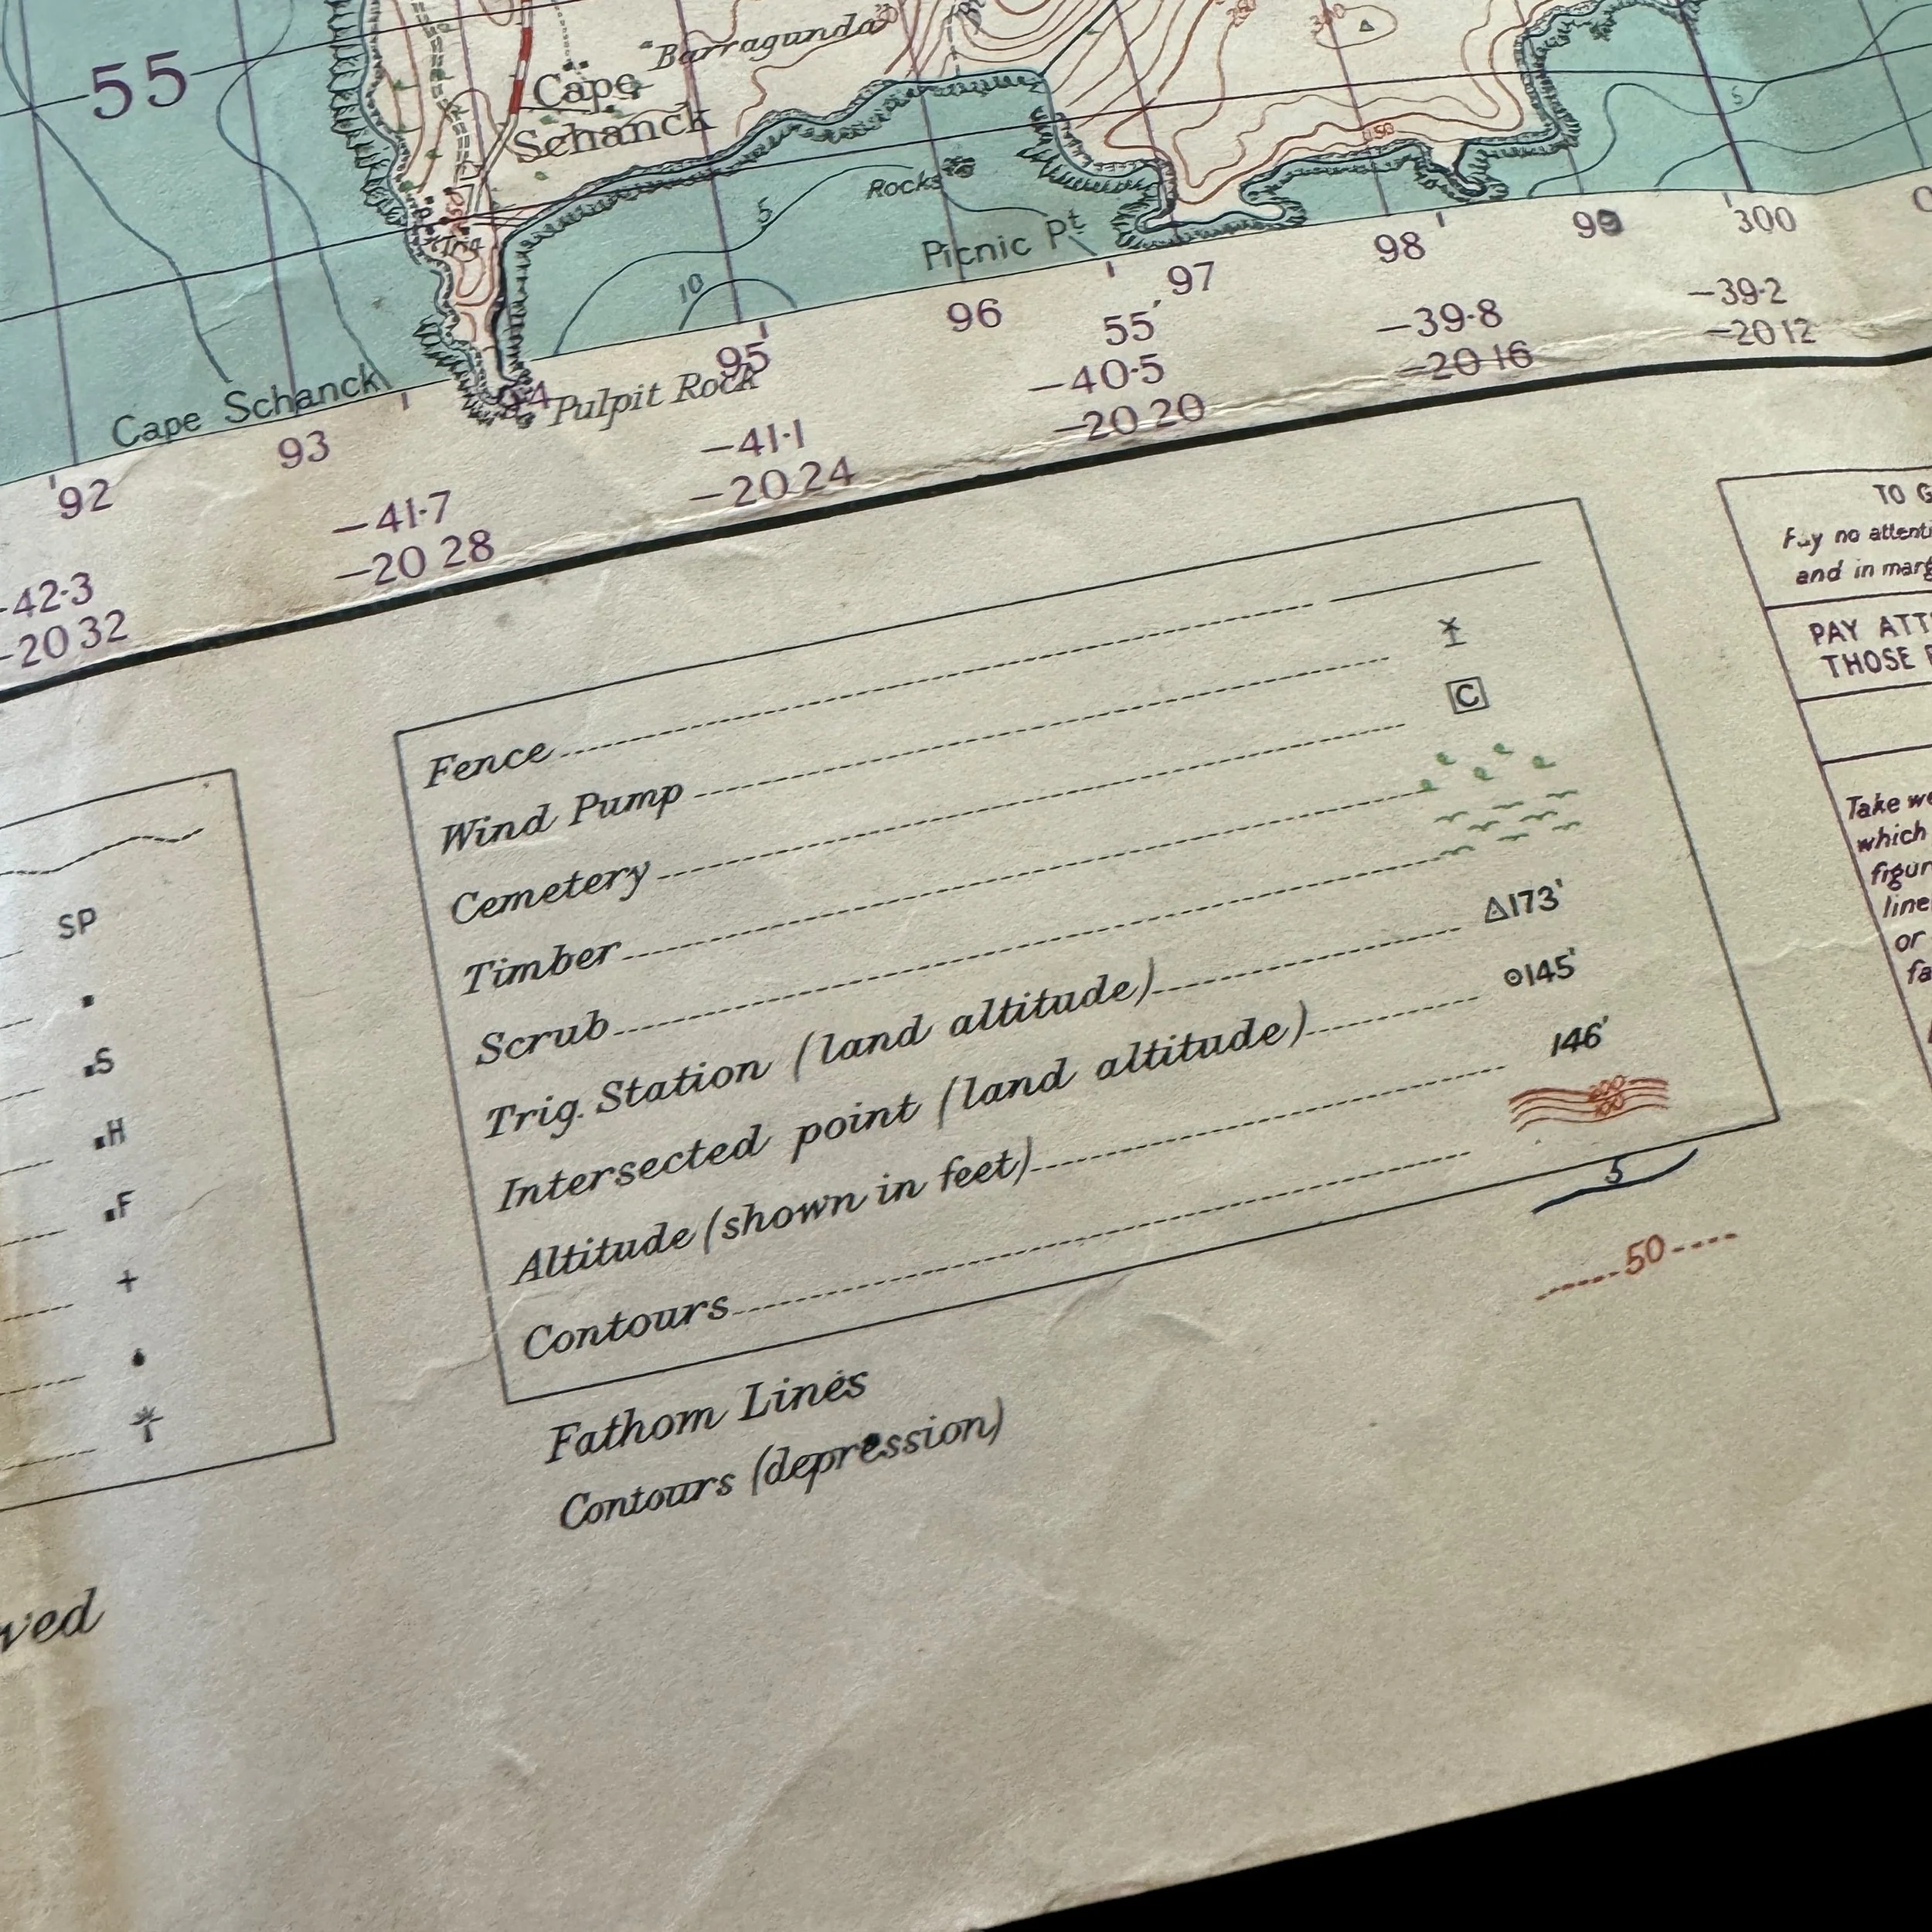 55
"Barragunda"
250
300
Cape
Schanck
150
5
Rocks
Trig
5
Picnic Pt
10
Cape Schanck
Pulpit Rock
92
93
94
95
96
97
98
99
300
55'
-42·3
-20 32
-41·7
-20 28
-41·1
-20 24
-40·5
-20 20
-39·8
-20 16
-39·2
-20 12
SP
S
H
F
Fence
Wind Pump
Cemetery C
Timber
Scrub
Trig. Station (land altitude) 173'
Intersected point (land altitude) 145'
Altitude (shown in feet) 146'
Contours 200 100
Fathom Lines 5
Contours (depression) 50
TO G
no attenti
and in marg
PAY ATT
THOSE
Take we
which
figur
line
or
fa
ved